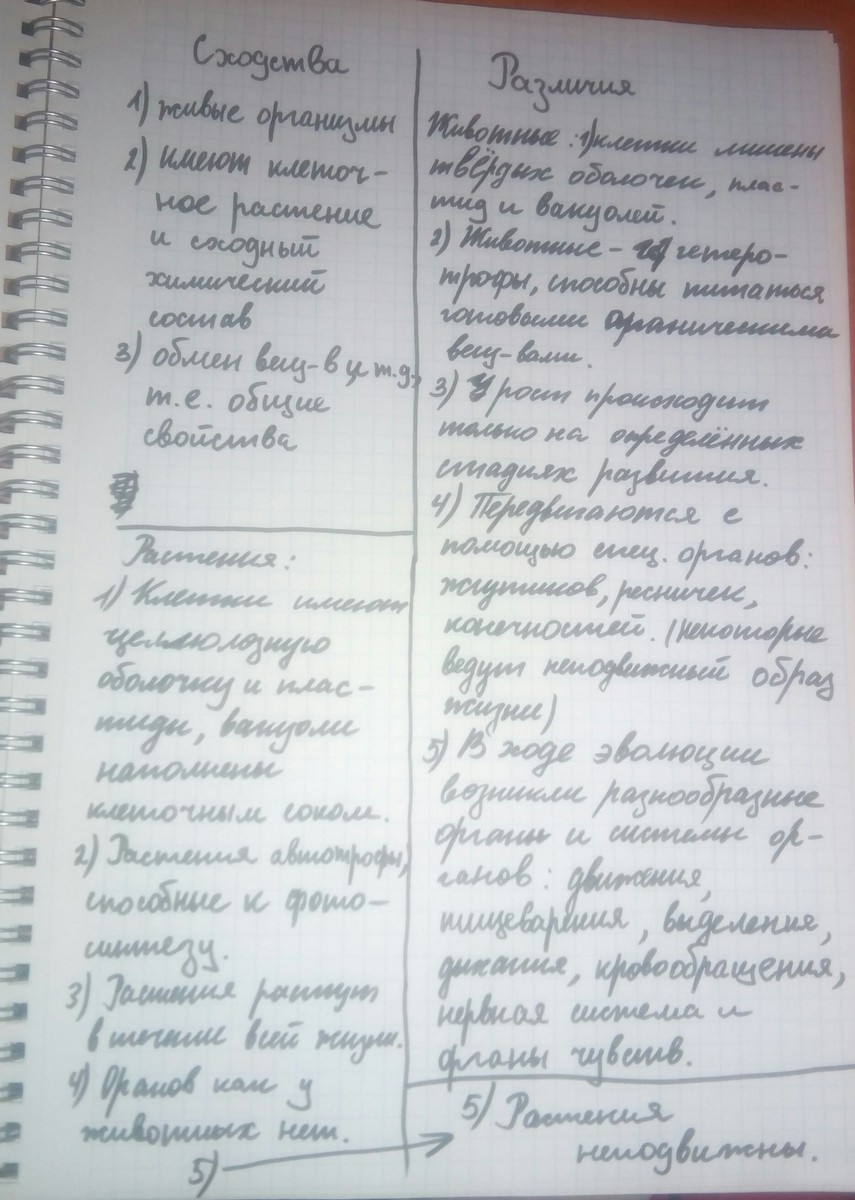 Сходства
1) живые организмы
2) имеют клеточ-
ное растение
и сходный
химический
состав
3) обмен вещ-в и т.д,
т.е. общие
свойства
Растения:
1) Клетки имеют
целлюлозную
оболочку и плас-
тиды, вакуоли
наполнены
клеточным соком.
2) Растения автотрофы,
способные к фото-
синтезу.
3) Растения растут
в течение всей жизни.
4) Органов как у
животных нет.
5)
Различия
Животные: 1) клетки лишены
твёрдых оболочек, плас-
тид и вакуолей.
2) Животные - гетеро-
трофы, способны питаться
готовыми органическими
вещ-вами.
3) рост происходит
только на определённых
стадиях развития.
4) Передвигаются с
помощью спец. органов:
жгутиков, ресничек,
конечностей. (некоторые
ведут неподвижный образ
жизни)
5) В ходе эволюции
возникли разнообразные
органы и системы ор-
ганов: движения,
пищеварения, выделения,
дыхания, кровообращения,
нервная система и
органы чувств.
5) Растения
неподвижны.